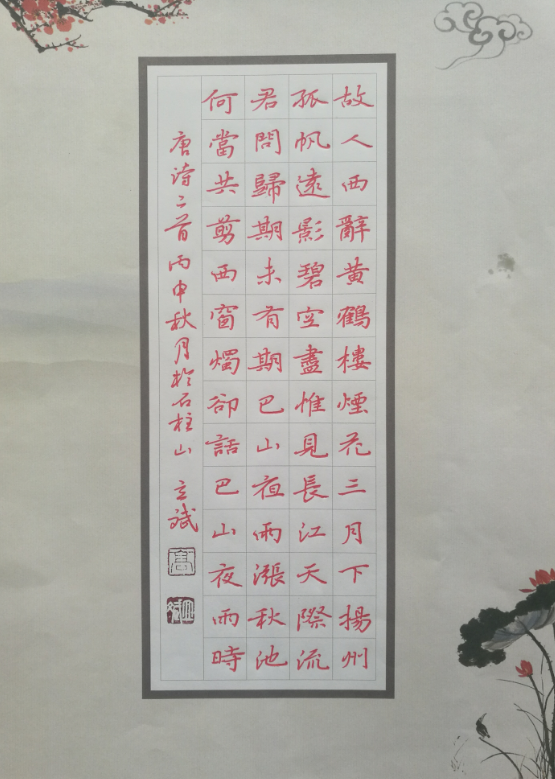 故人西辭黃鶴樓煙花三月下揚州
孤帆遠影碧空盡惟見長江天際流
君問歸期未有期巴山夜雨漲秋池
何當共剪西窗燭卻話巴山夜雨時
唐詩二首丙申秋月於石柱山 立斌